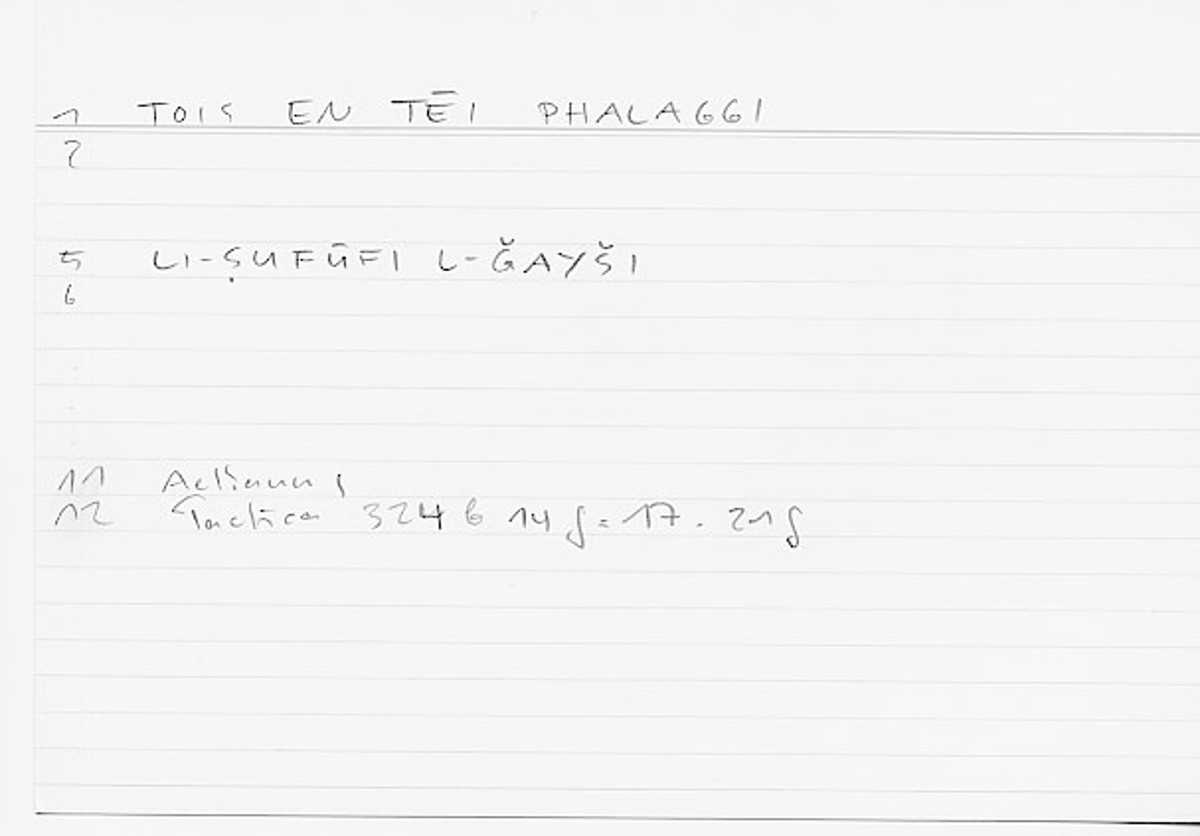 1 TOIS EN TĒI PHALAGGI
2
5 LI-ṢUFŪFI L-ǦAYŠI
6
11 Aelianus
12 Tactica 324 6 14 f = 17. 21 f